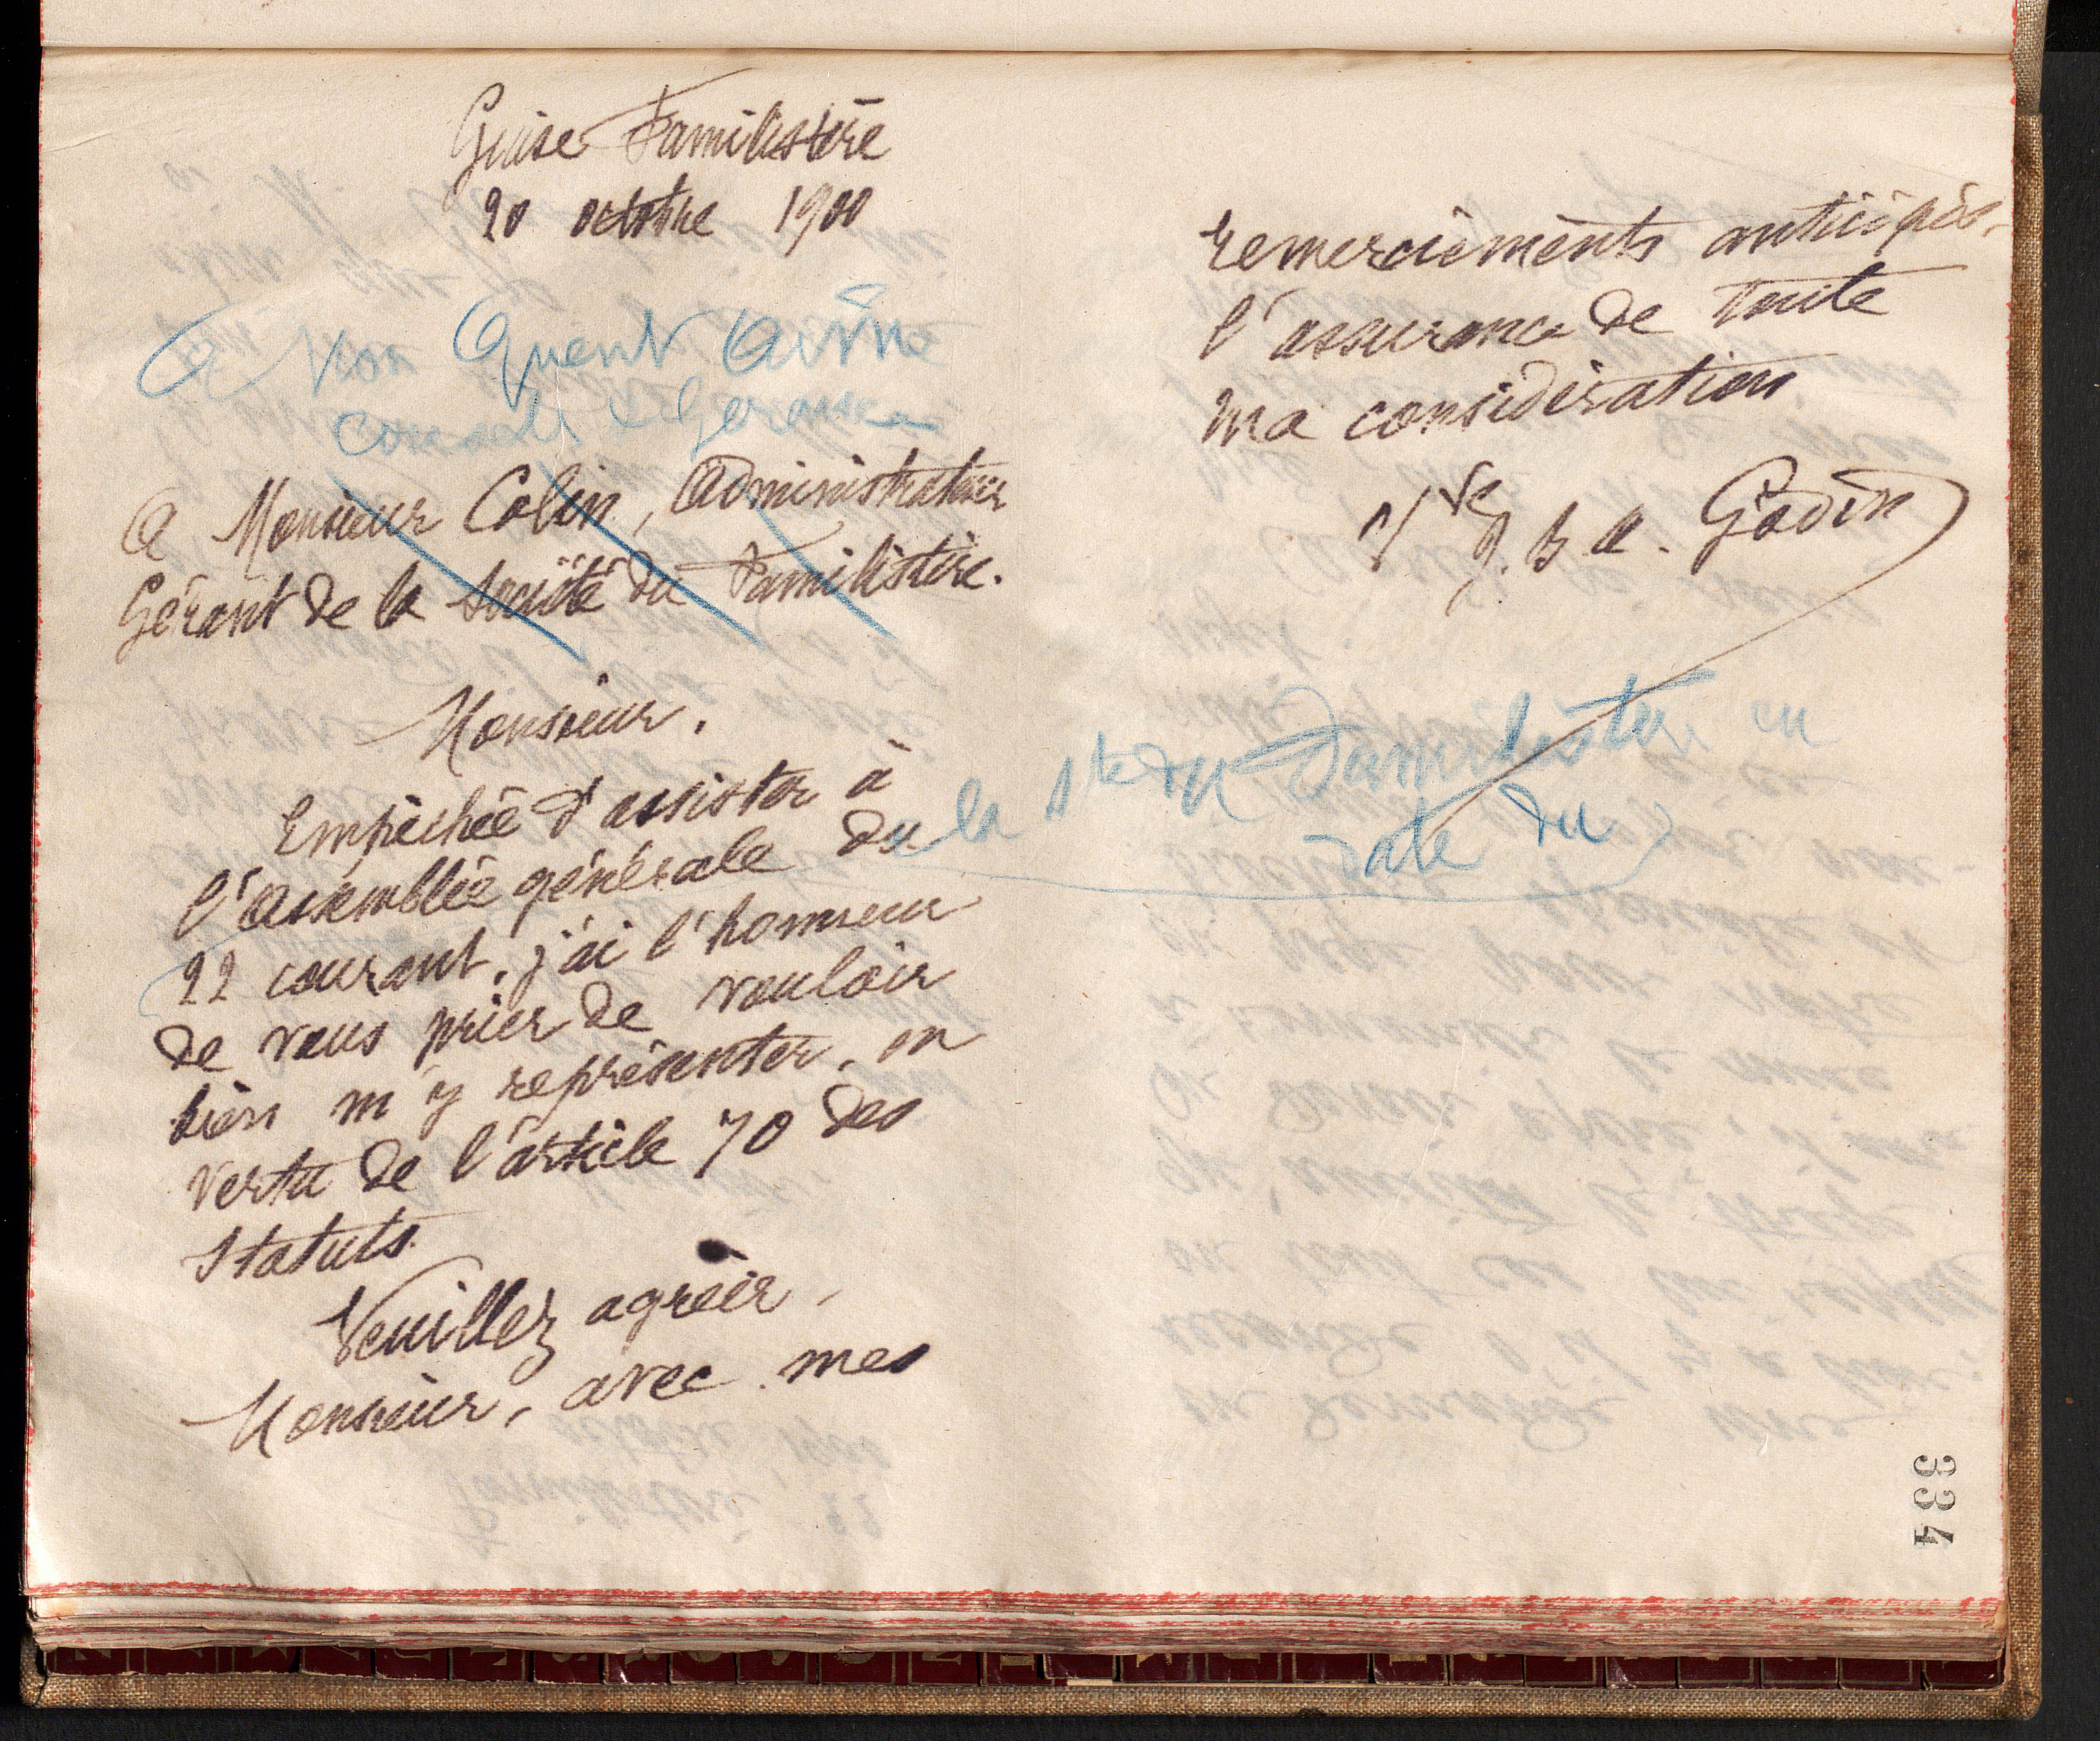 Guise Familistère
20 octobre 1900
A Mon Quent Aimé
Conseil de Gérance
A Monsieur Colin, Administrateur
Gérant de la Société du Familistère.
Monsieur.
Empêchée d'assister à
l'assemblée générale du
la Sté du Familistère en
date du
22 courant, j'ai l'honneur
de vous prier de vouloir
bien m'y représenter, en
vertu de l'article 70 des
statuts.
Veuillez agréer,
Monsieur, avec mes
remerciements anticipés,
l'assurance de toute
ma considération
Vve J. B. A. Godin
334